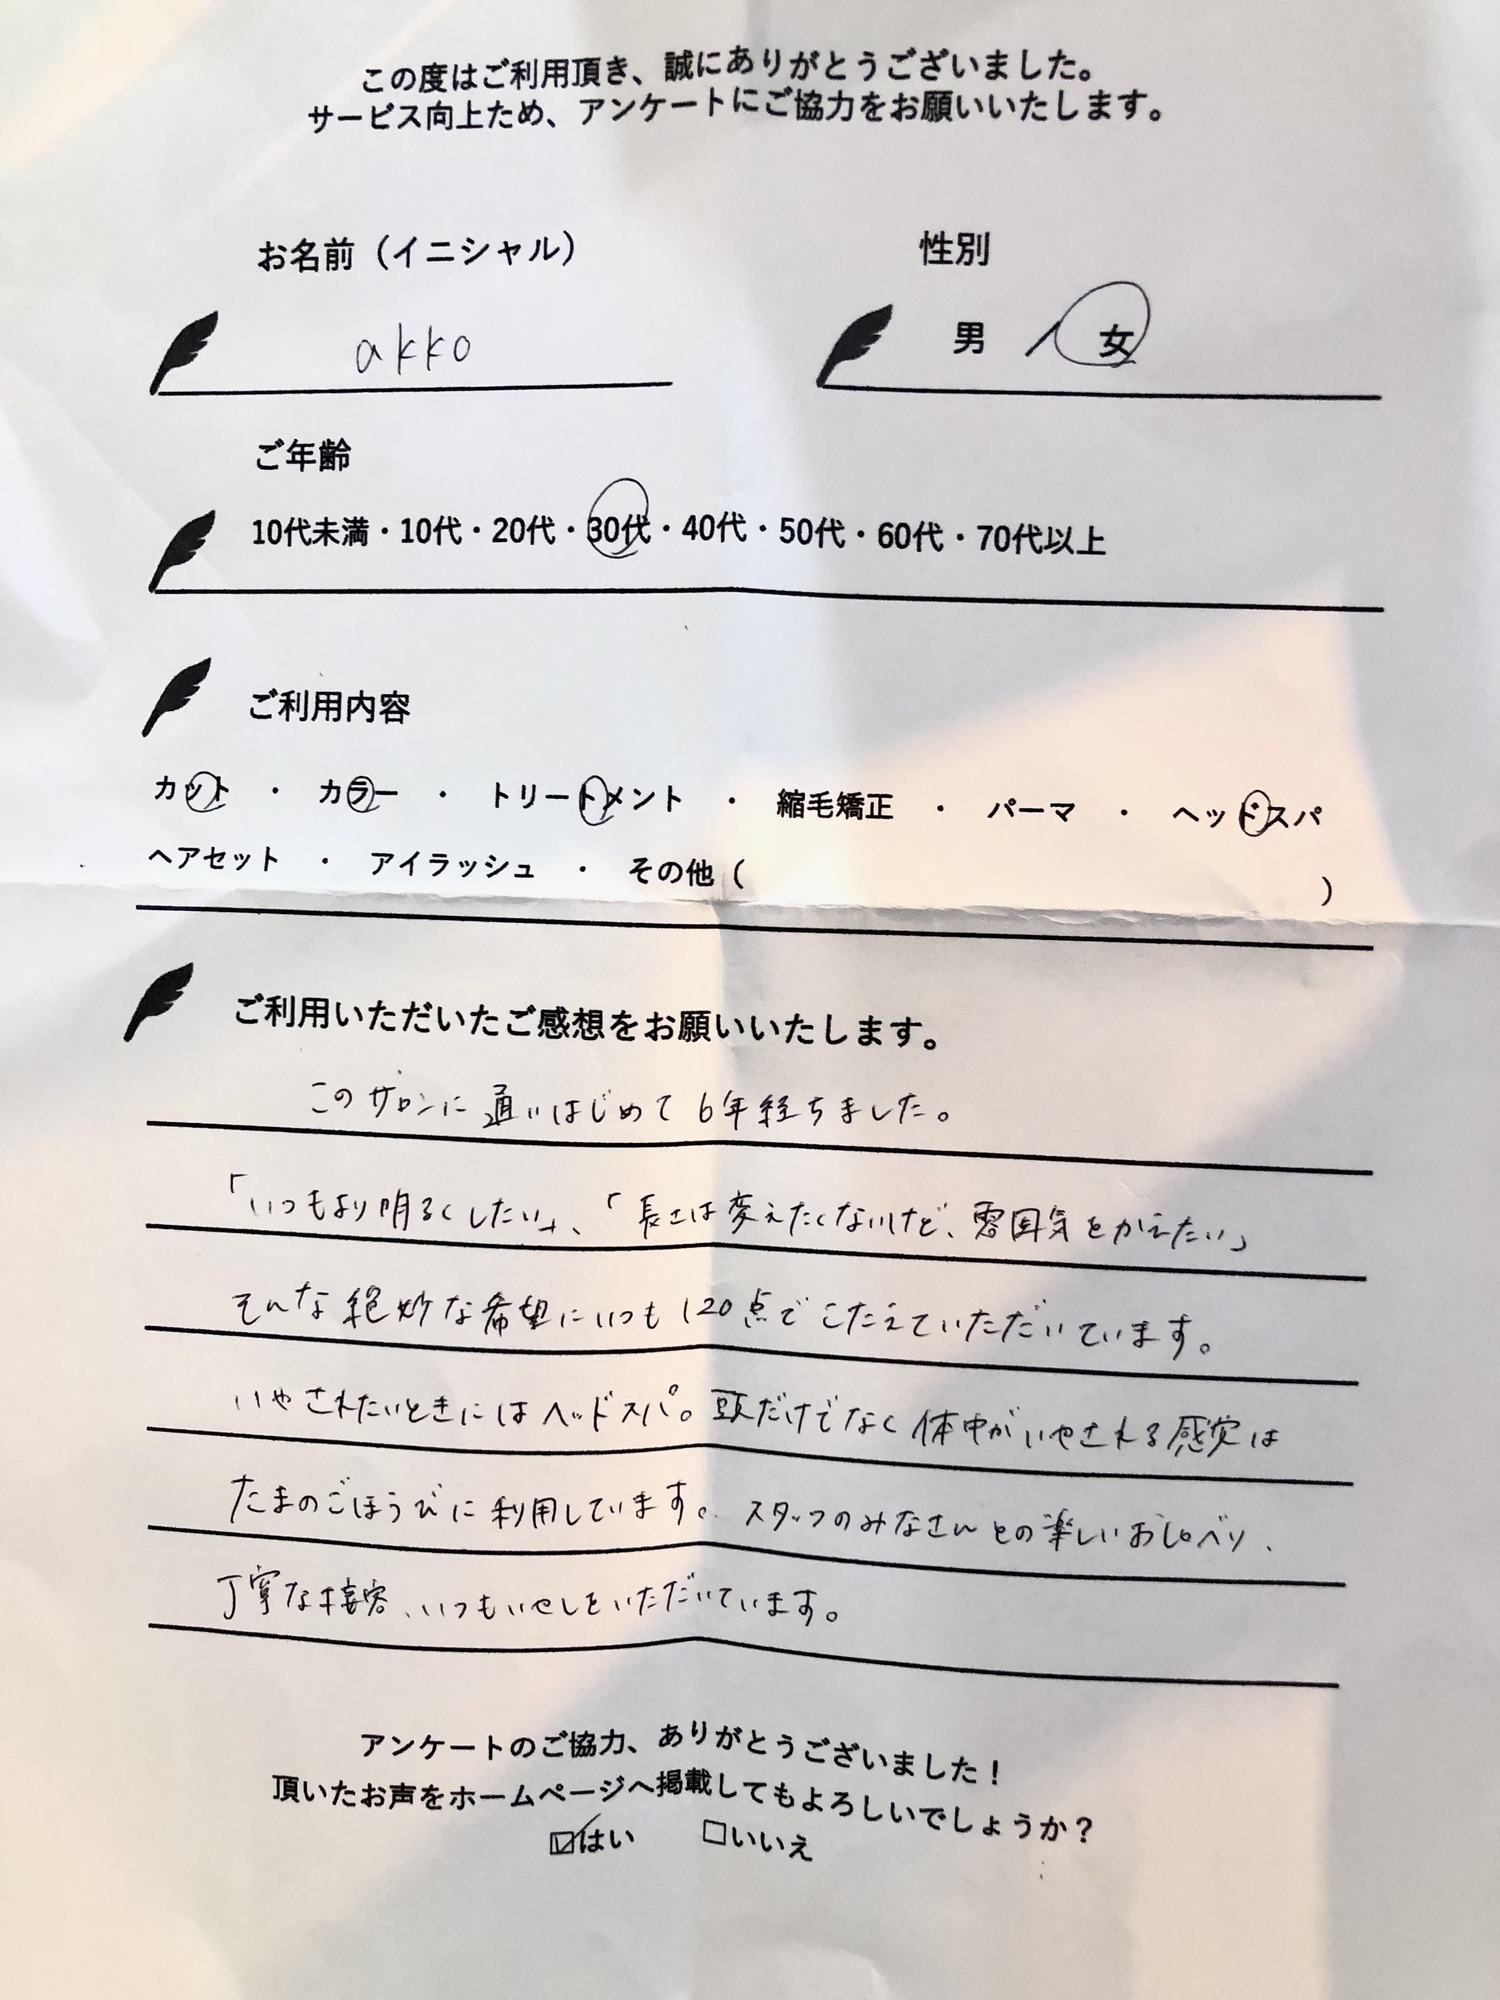 この度はご利用頂き、誠にありがとうございました。
サービス向上ため、アンケートにご協力をお願いいたします。
お名前（イニシャル）
性別
akko
男 / 女
ご年齢
10代未満・10代・20代・30代・40代・50代・60代・70代以上
ご利用内容
カット ・ カラー ・ トリートメント ・ 縮毛矯正 ・ パーマ ・ ヘッドスパ
ヘアセット ・ アイラッシュ ・ その他（ ）
ご利用いただいたご感想をお願いいたします。
このサロンに通いはじめて6年経ちました。
「いつもより明るくしたい」、「長さは変えたくないけど、雰囲気をかえたい」
そんな絶妙な希望にいつも120点でこたえていただいています。
いやされたいときにはヘッドスパ。頭だけでなく体中がいやされる感覚は
たまのごほうびに利用しています。スタッフのみなさんとの楽しいおしゃべり、
丁寧な接客、いつもいやしをいただいています。
アンケートのご協力、ありがとうございました！
頂いたお声をホームページへ掲載してもよろしいでしょうか？
☑はい □いいえ